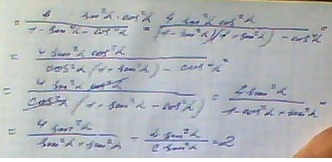 = 4 sin²α · cos²α / 1 - sin⁴α - cos⁴α = 4 sin²α cos²α / (1 - sin²α)(1 + sin²α) - cos⁴α =
= 4 sin²α cos²α / cos²α (1 + sin²α) - cos⁴α =
= 4 sin²α cos²α / cos²α (1 + sin²α - cos²α) = 4 sin²α / 1 - cos²α + sin²α =
= 4 sin²α / sin²α + sin²α = 4 sin²α / 2 sin²α = 2